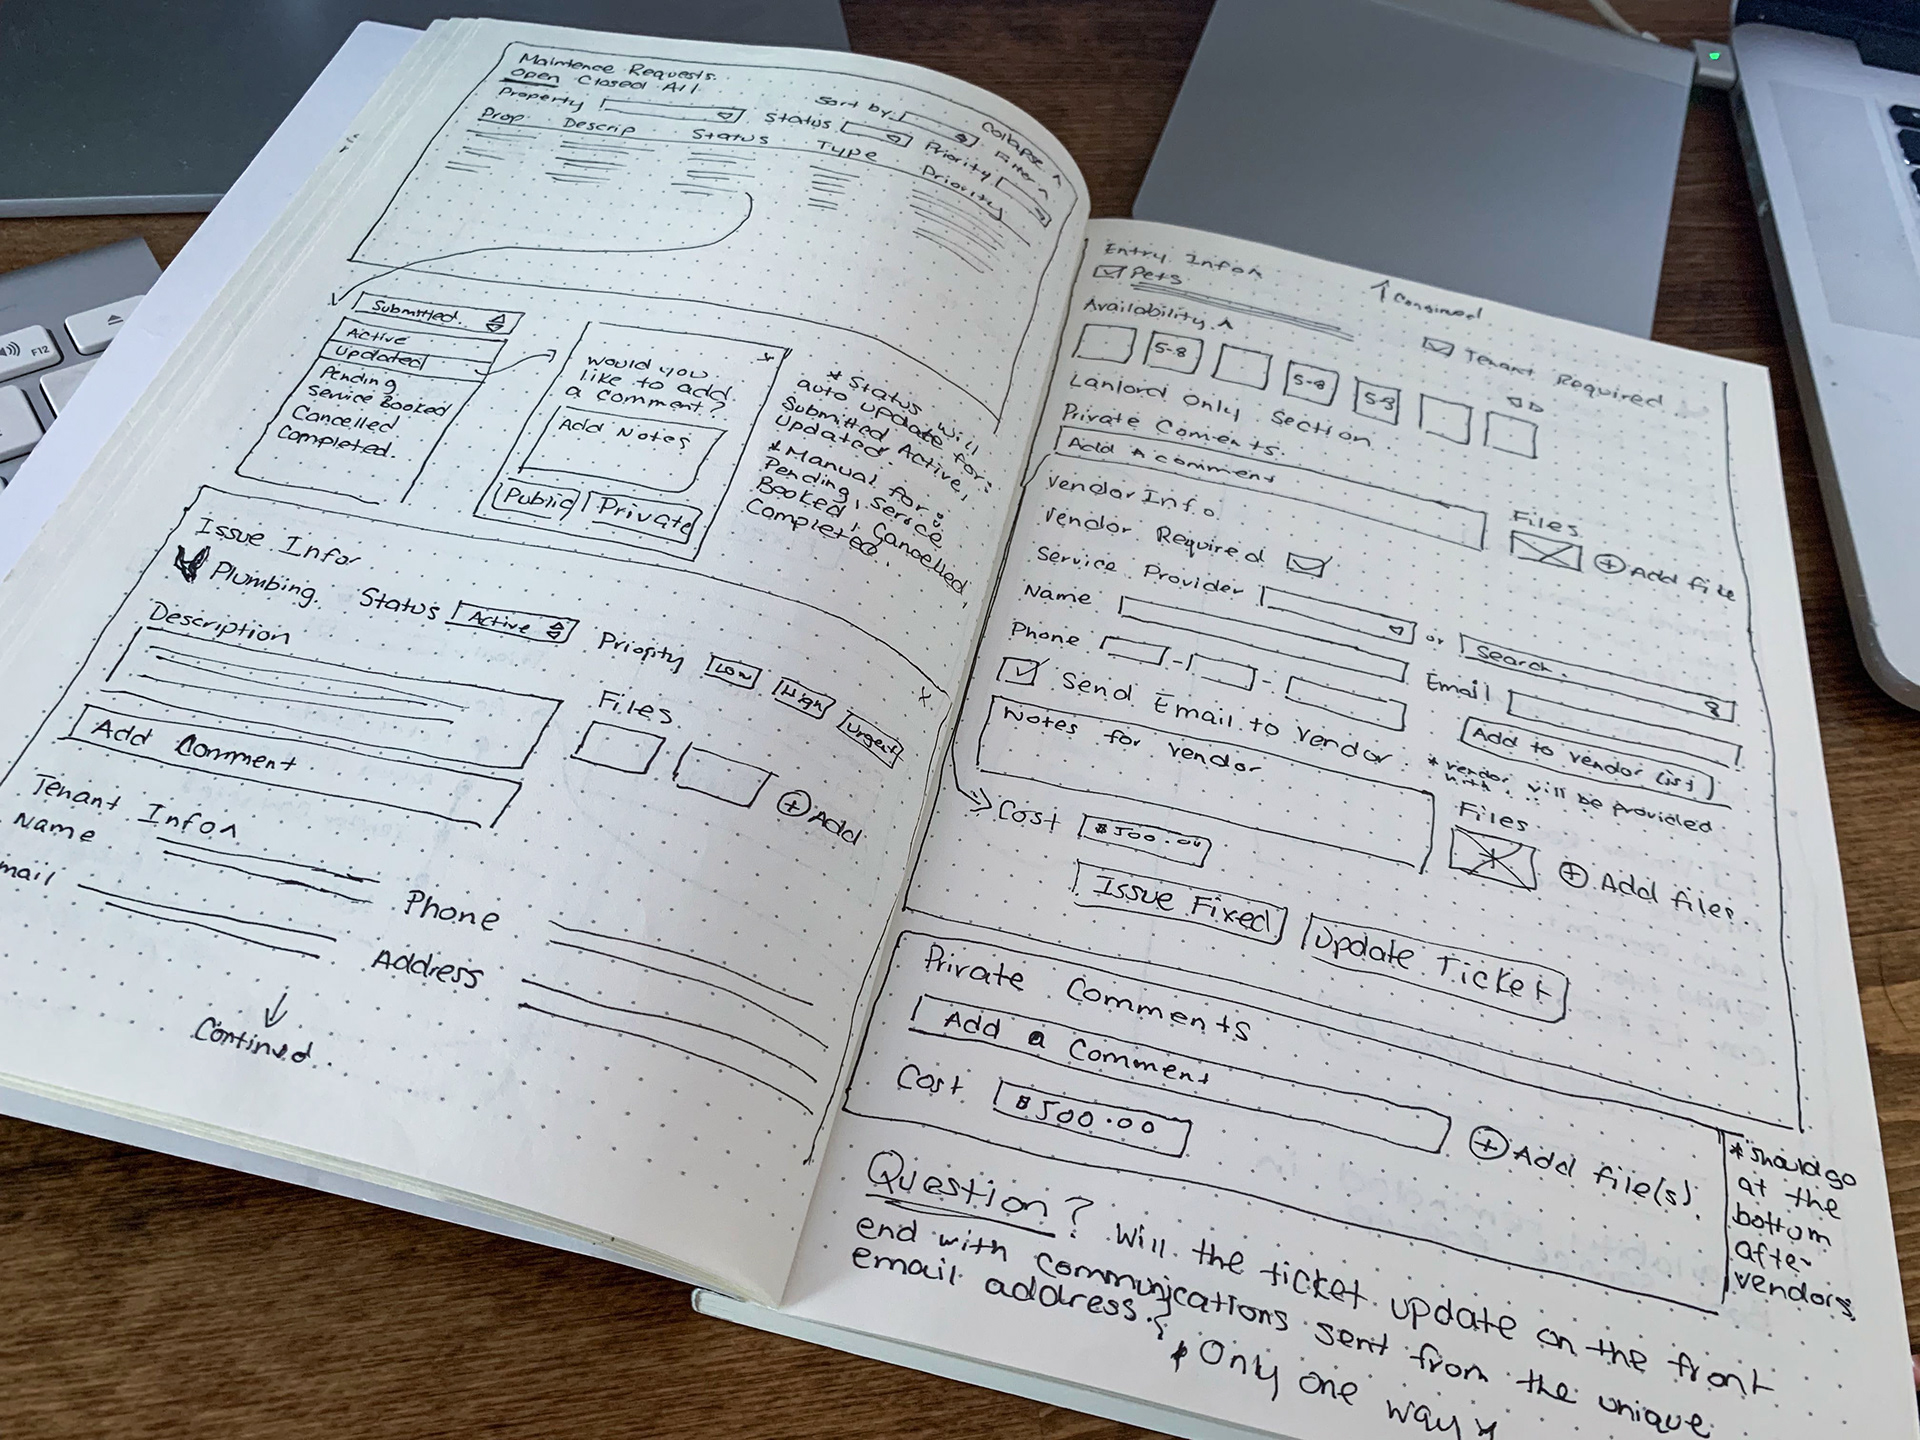 Maintence Requests.
Open Closed All
Sort by
Collapse ^
Property
Status
Priority
Filter ^
Prop
Descrip
Status
Type
Priority
Submitted
Active
Updated
Pending
Service Booked
Cancelled
Completed.
would you
like to add
a comment?
Add Notes
Public
Private
* Status will
auto update for:
Submitted, Active,
Updated.
* Manual for:
Pending, Service
Booked, Cancelled,
Completed.
X
Issue Info^
Plumbing.
Status
Active
Priority
Low
High
Urgent
Description
Files
Add Comment
+ Add
Tenant Info^
Name
Phone
mail
Address
Continued
Entry Info^
Pets
Tenant Required
Availability ^
5-8
5-8
5-8
Lanlord Only Section
Private Coments.
Add a comment
Files
+ Add file
Vendor Info
Vendor Required
Service Provider
or
Search
Name
Phone
-
-
Email
Send Email to vendor
Add to vendor list
* vendor will be provided
with...
Notes for vendor
Files
+ Add files.
Cost
$500.00
Issue Fixed
Update Ticket
Private Comments
Add a Comment
Cost
$500.00
+ Add file(s)
* Should go
at the
bottom
after
vendors
Question? Will the ticket update on the front
end with communications sent from the unique
email address?
Only one way
F12